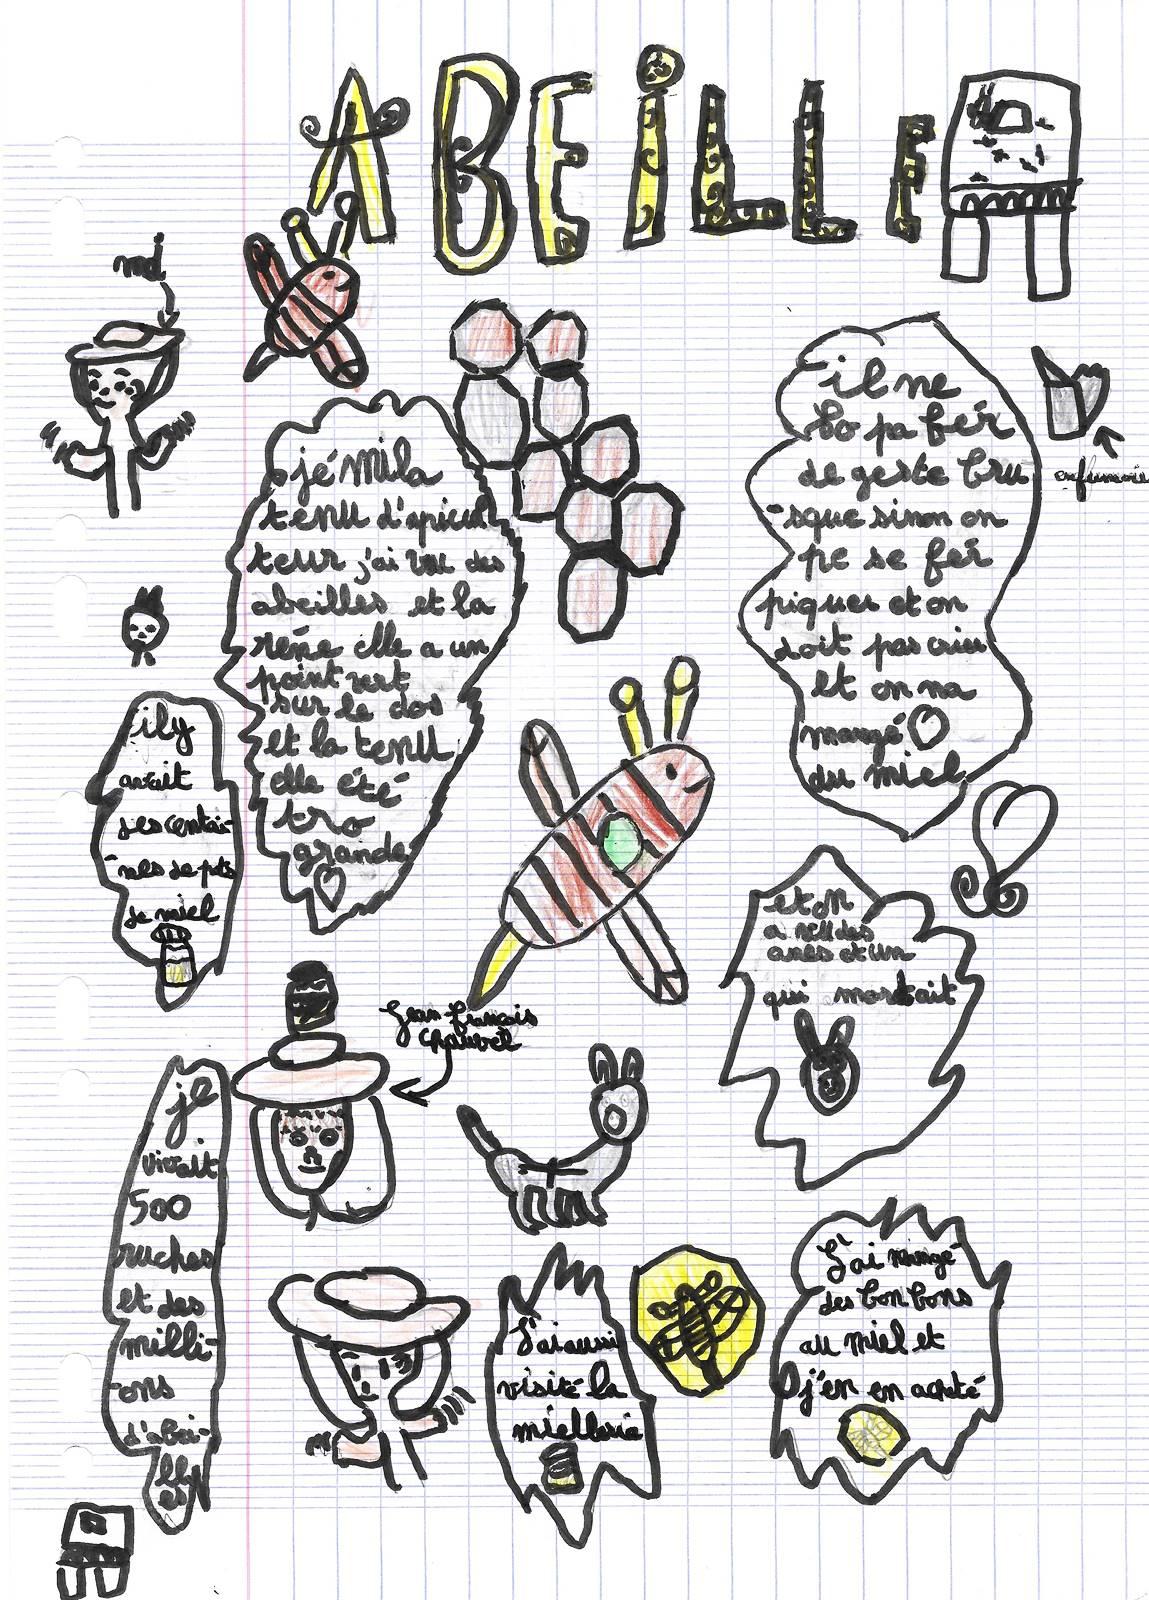 ABEILLE
moi
je mila
tenu d'apicul
teur j'ai vu des
abeilles et la
rène elle a un
point vert
sur le dos
et la tenu
elle été
tro
grande
il ne
fo pa fér
de geste bru
-sque sinon on
pe se fér
piquer et on
doit pas crier
et on na
mangé
du miel
enfumoir
il y
avait
des centai-
-nes de pots
de miel
et on
a vu des
anes et un
qui mordait
Jean-François
Chauvel
je
vivait
500
ruches
et des
milli-
-ons
d'abei-
lles
J'ai aussi
visité la
miellerie
J'ai mangé
des bonbons
au miel et
j'en en acheté